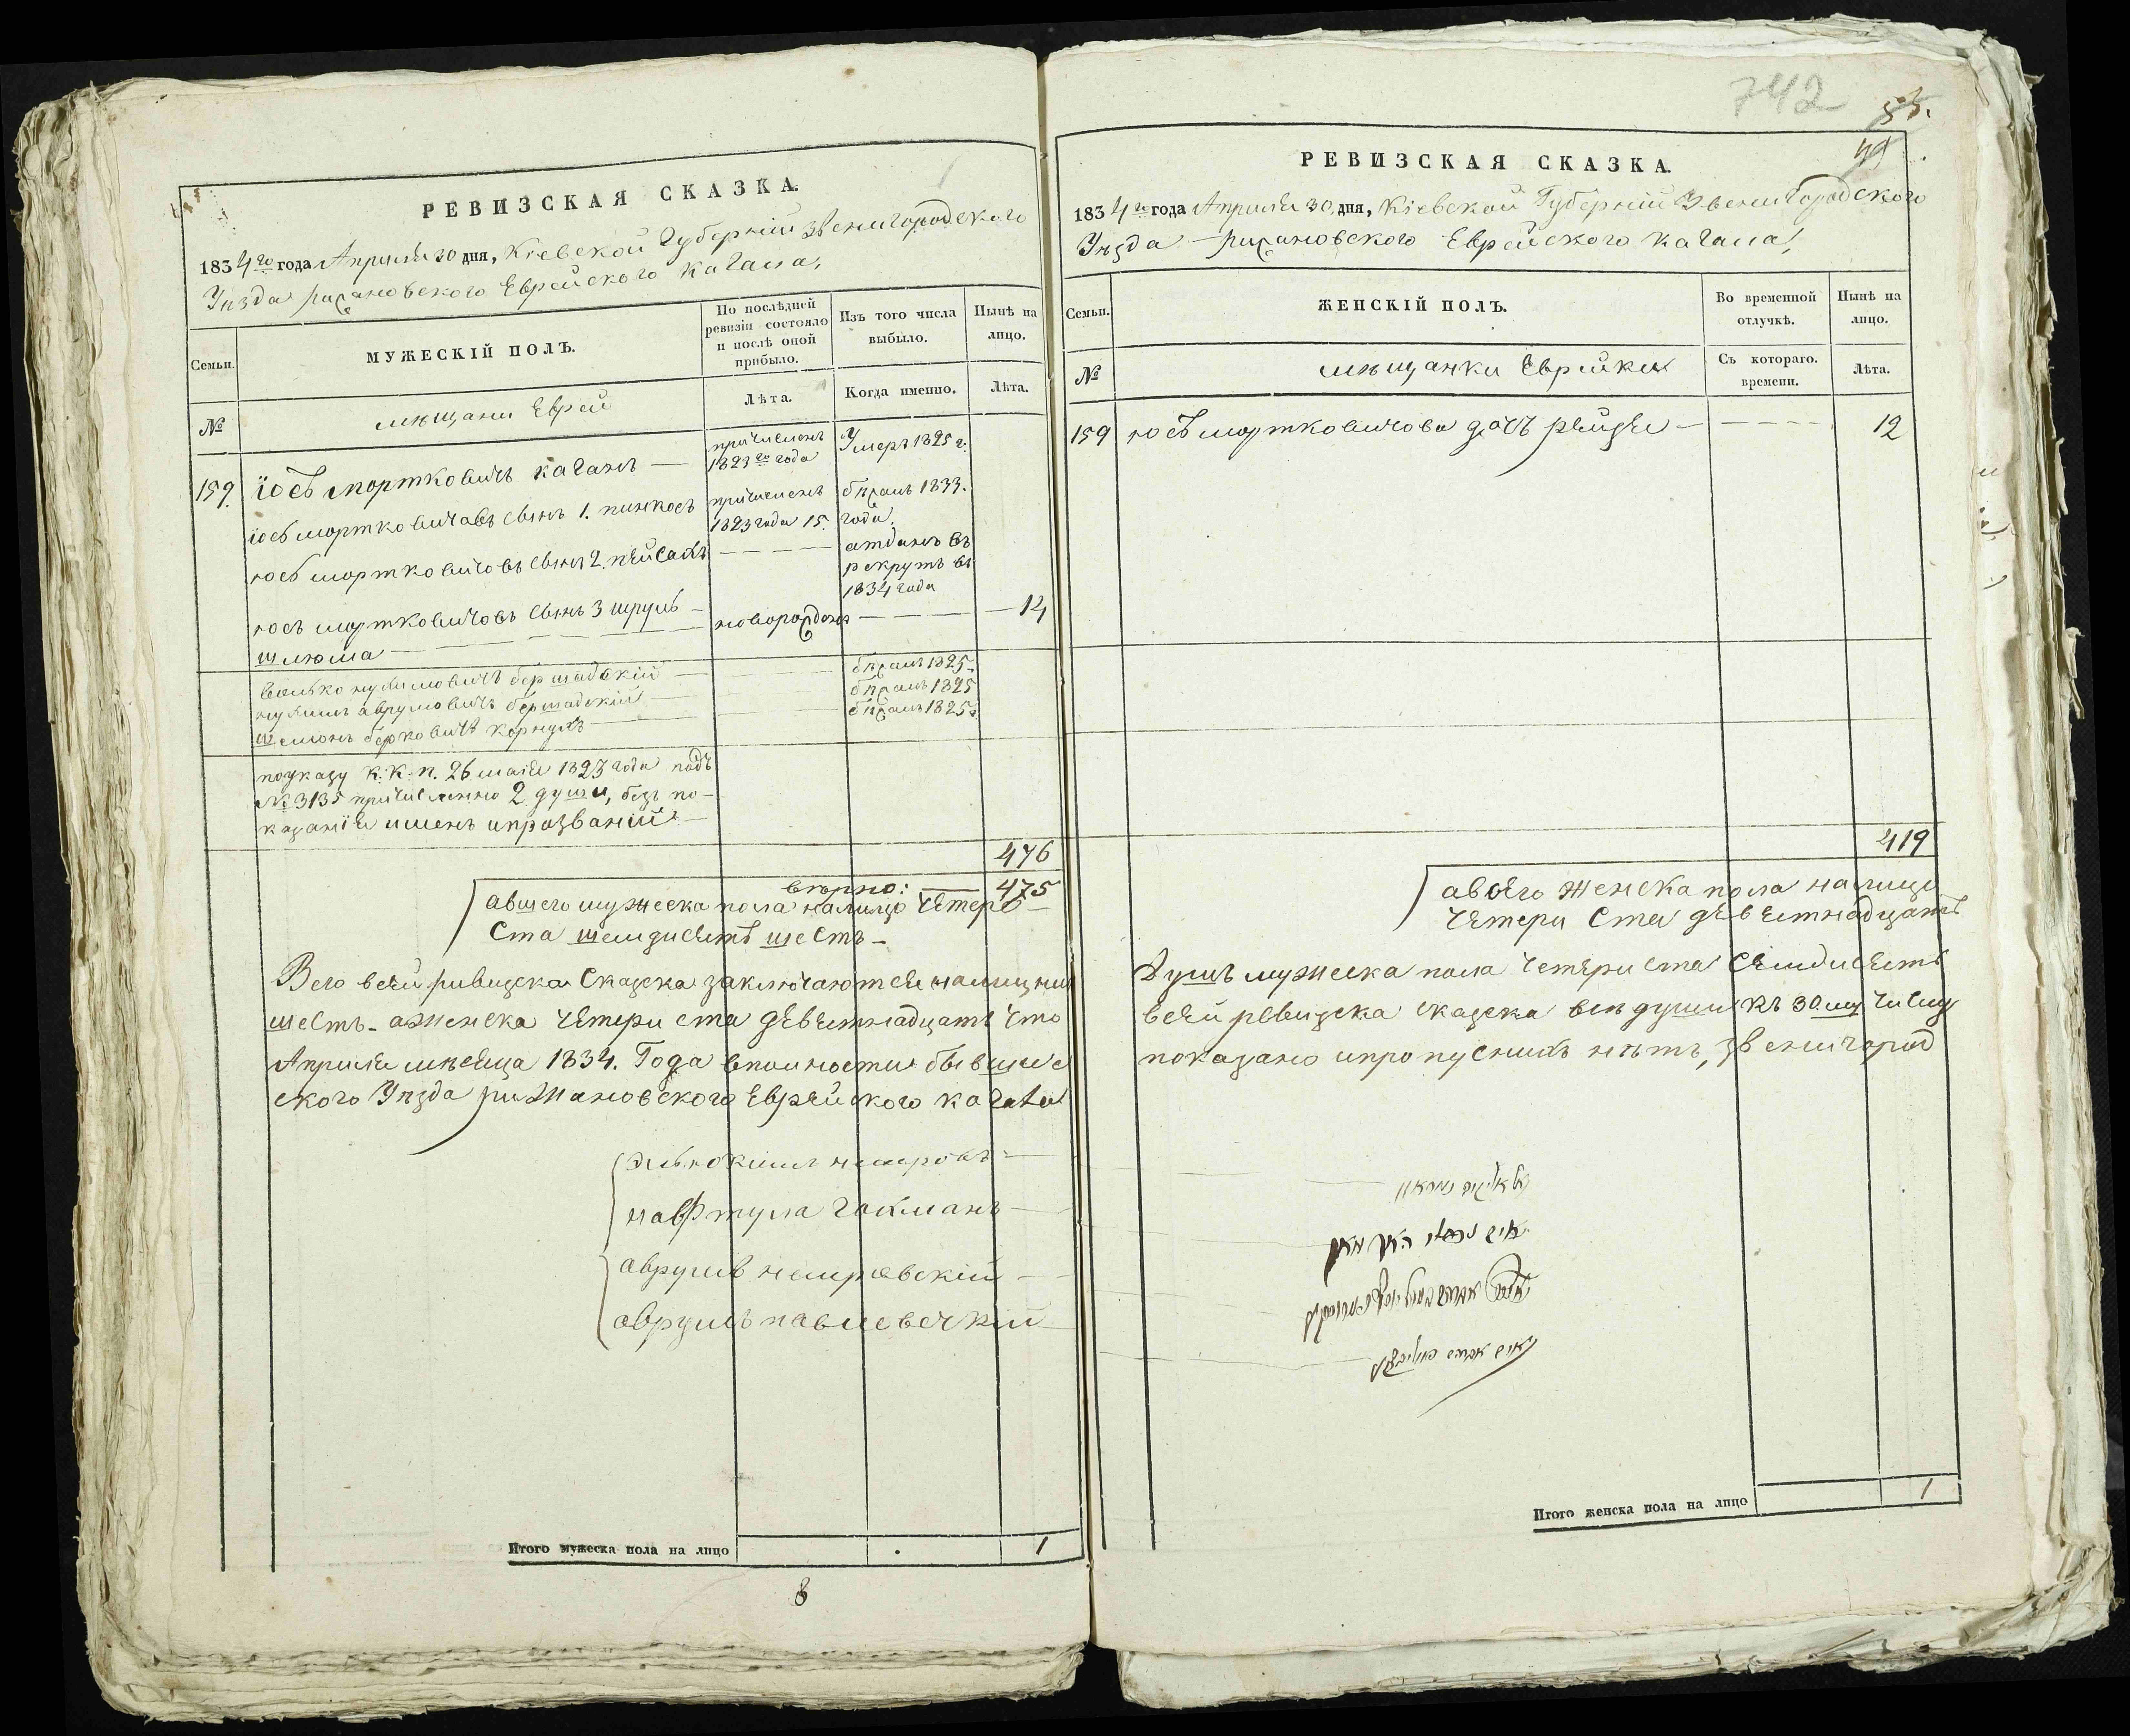 РЕВИЗСКАЯ СКАЗКА.
1834го года Апрыля 30 дня, Кіевской Губерніи Звенигородского
Уѣзда рижановского Еврейского кагала,
Семьи.
МУЖЕСКІЙ ПОЛЪ.
По послѣдней ревизіи состояло и послѣ оной прибыло.
Изъ того числа выбыло.
Нынѣ на лицо.
№
мѣщани Еврей
Лѣта.
Когда именно.
Лѣта.
159 іосъ мортковичъ каганъ — причисленъ 1823го года Умеръ 1825 г.
іосъ мортковичавъ сынъ 1. пинкосъ причисленъ 1823 года 15. бѣжалъ 1833. года.
юсъ мортковичовъ сынъ 2. пейсахъ — — — — атданъ въ рекрутъ въ 1834 года
юсъ мортковичовъ сынъ 3 шруль — новорожденъ — — — — 14
шлюма — — — —
волько нухимовичъ бершадскій — — бѣжалъ 1825.
нухимъ аврумовичъ бершадскій — бѣжалъ 1825
шемонъ берковичъ — бѣжалъ 1825.
поуказу К. К. п. 26 маія 1823 года подъ
№ 3135 причисленно 2 души, безъ по-
казанія именъ ипрозваній —
476
вѣрно: — 475
авшего мужеска пола налицо Чѣтере-
Ста шемдисятъ шесть —
Всго всей ривизска Сказска заключаются налицнии
шесть — аженска чѣтери ста девѣтнадцатъ что
Апрыля мѣсяца 1834. Года вполности бывшие
ского Уѣзда рижановского Еврейского кагала
навфтула гакманъ —
аврумъ немировскій —
аврумъ
Итого мужеска пола на лицо 1
8
742
49
РЕВИЗСКАЯ СКАЗКА.
1834го года Апрыля 30 дня, Кіевской Губерніи Звенигородского
Уѣзда — рижановского Еврейского кагала,
Семьи.
ЖЕНСКІЙ ПОЛЪ.
Во временной отлучкѣ.
Нынѣ на лицо.
№
мѣщанки Еврейки
Съ котораго. времени.
Лѣта.
159 юсъ мортковичова дочъ рейзя — — — — — 12
419
авсего женска пола налицо
чѣтери Ста девѣтнадцатъ
Душъ мужеска пола четѣри ста сѣмдисятъ
всей ревизска сказска всѣ души къ 30му числу
показано ипропусныхъ нѣтъ, звенигород
Итого женска пола на лицо 1